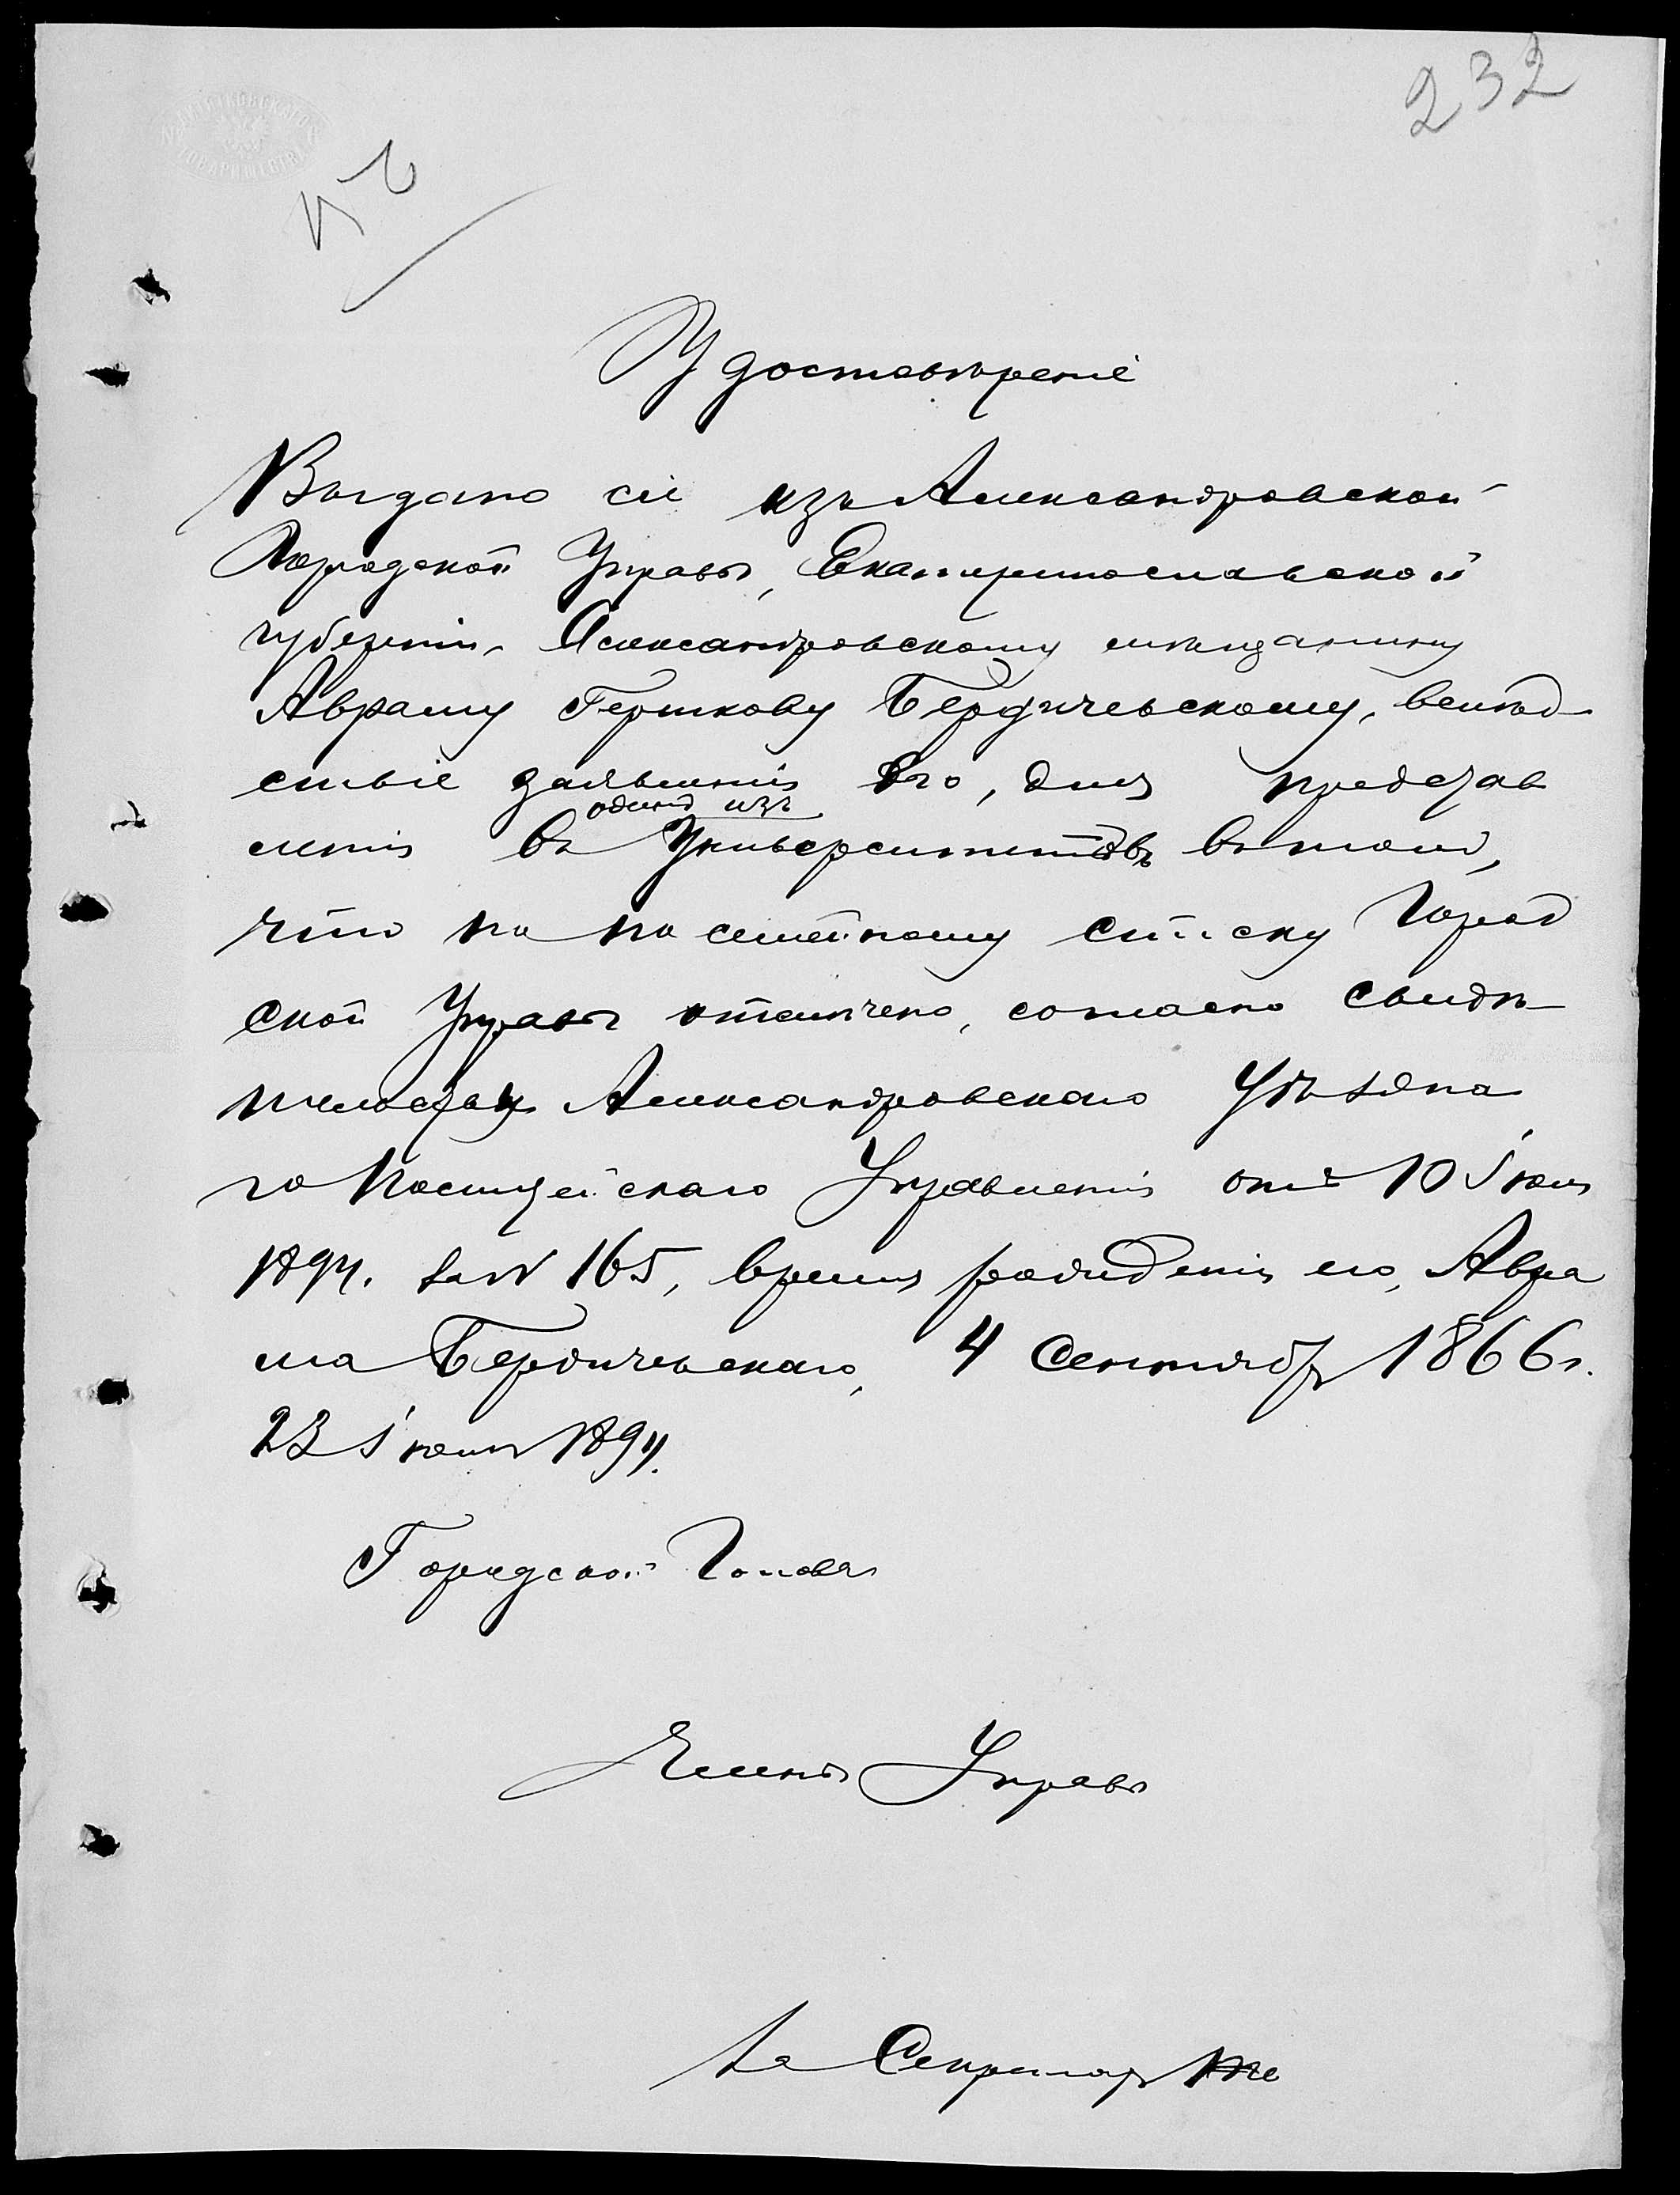 232
Удостовѣреніе
Выдано сіе изъ Александровской
Городской Управы, Екатеринославской
губерніи, Александровскому мѣщанину
Авраму Гершкову Бердичевскому, вслѣд
ствіе заявленія его, для представ
одинъ изъ
ленія въ Университетовъ въ томъ,
что по посемейному списку Город
ской Управы отмѣчено, согласно свидѣ
тельству Александровскаго Уѣздна
го Полицейскаго Управленія отъ 10 Іюня
189 г. за № 165, время рожденія его, Авра
ма Бердичевскаго, 4 Сентября 1866 г.
23 Іюня 189
Городской Голова
Членъ Управы
За Секретаря